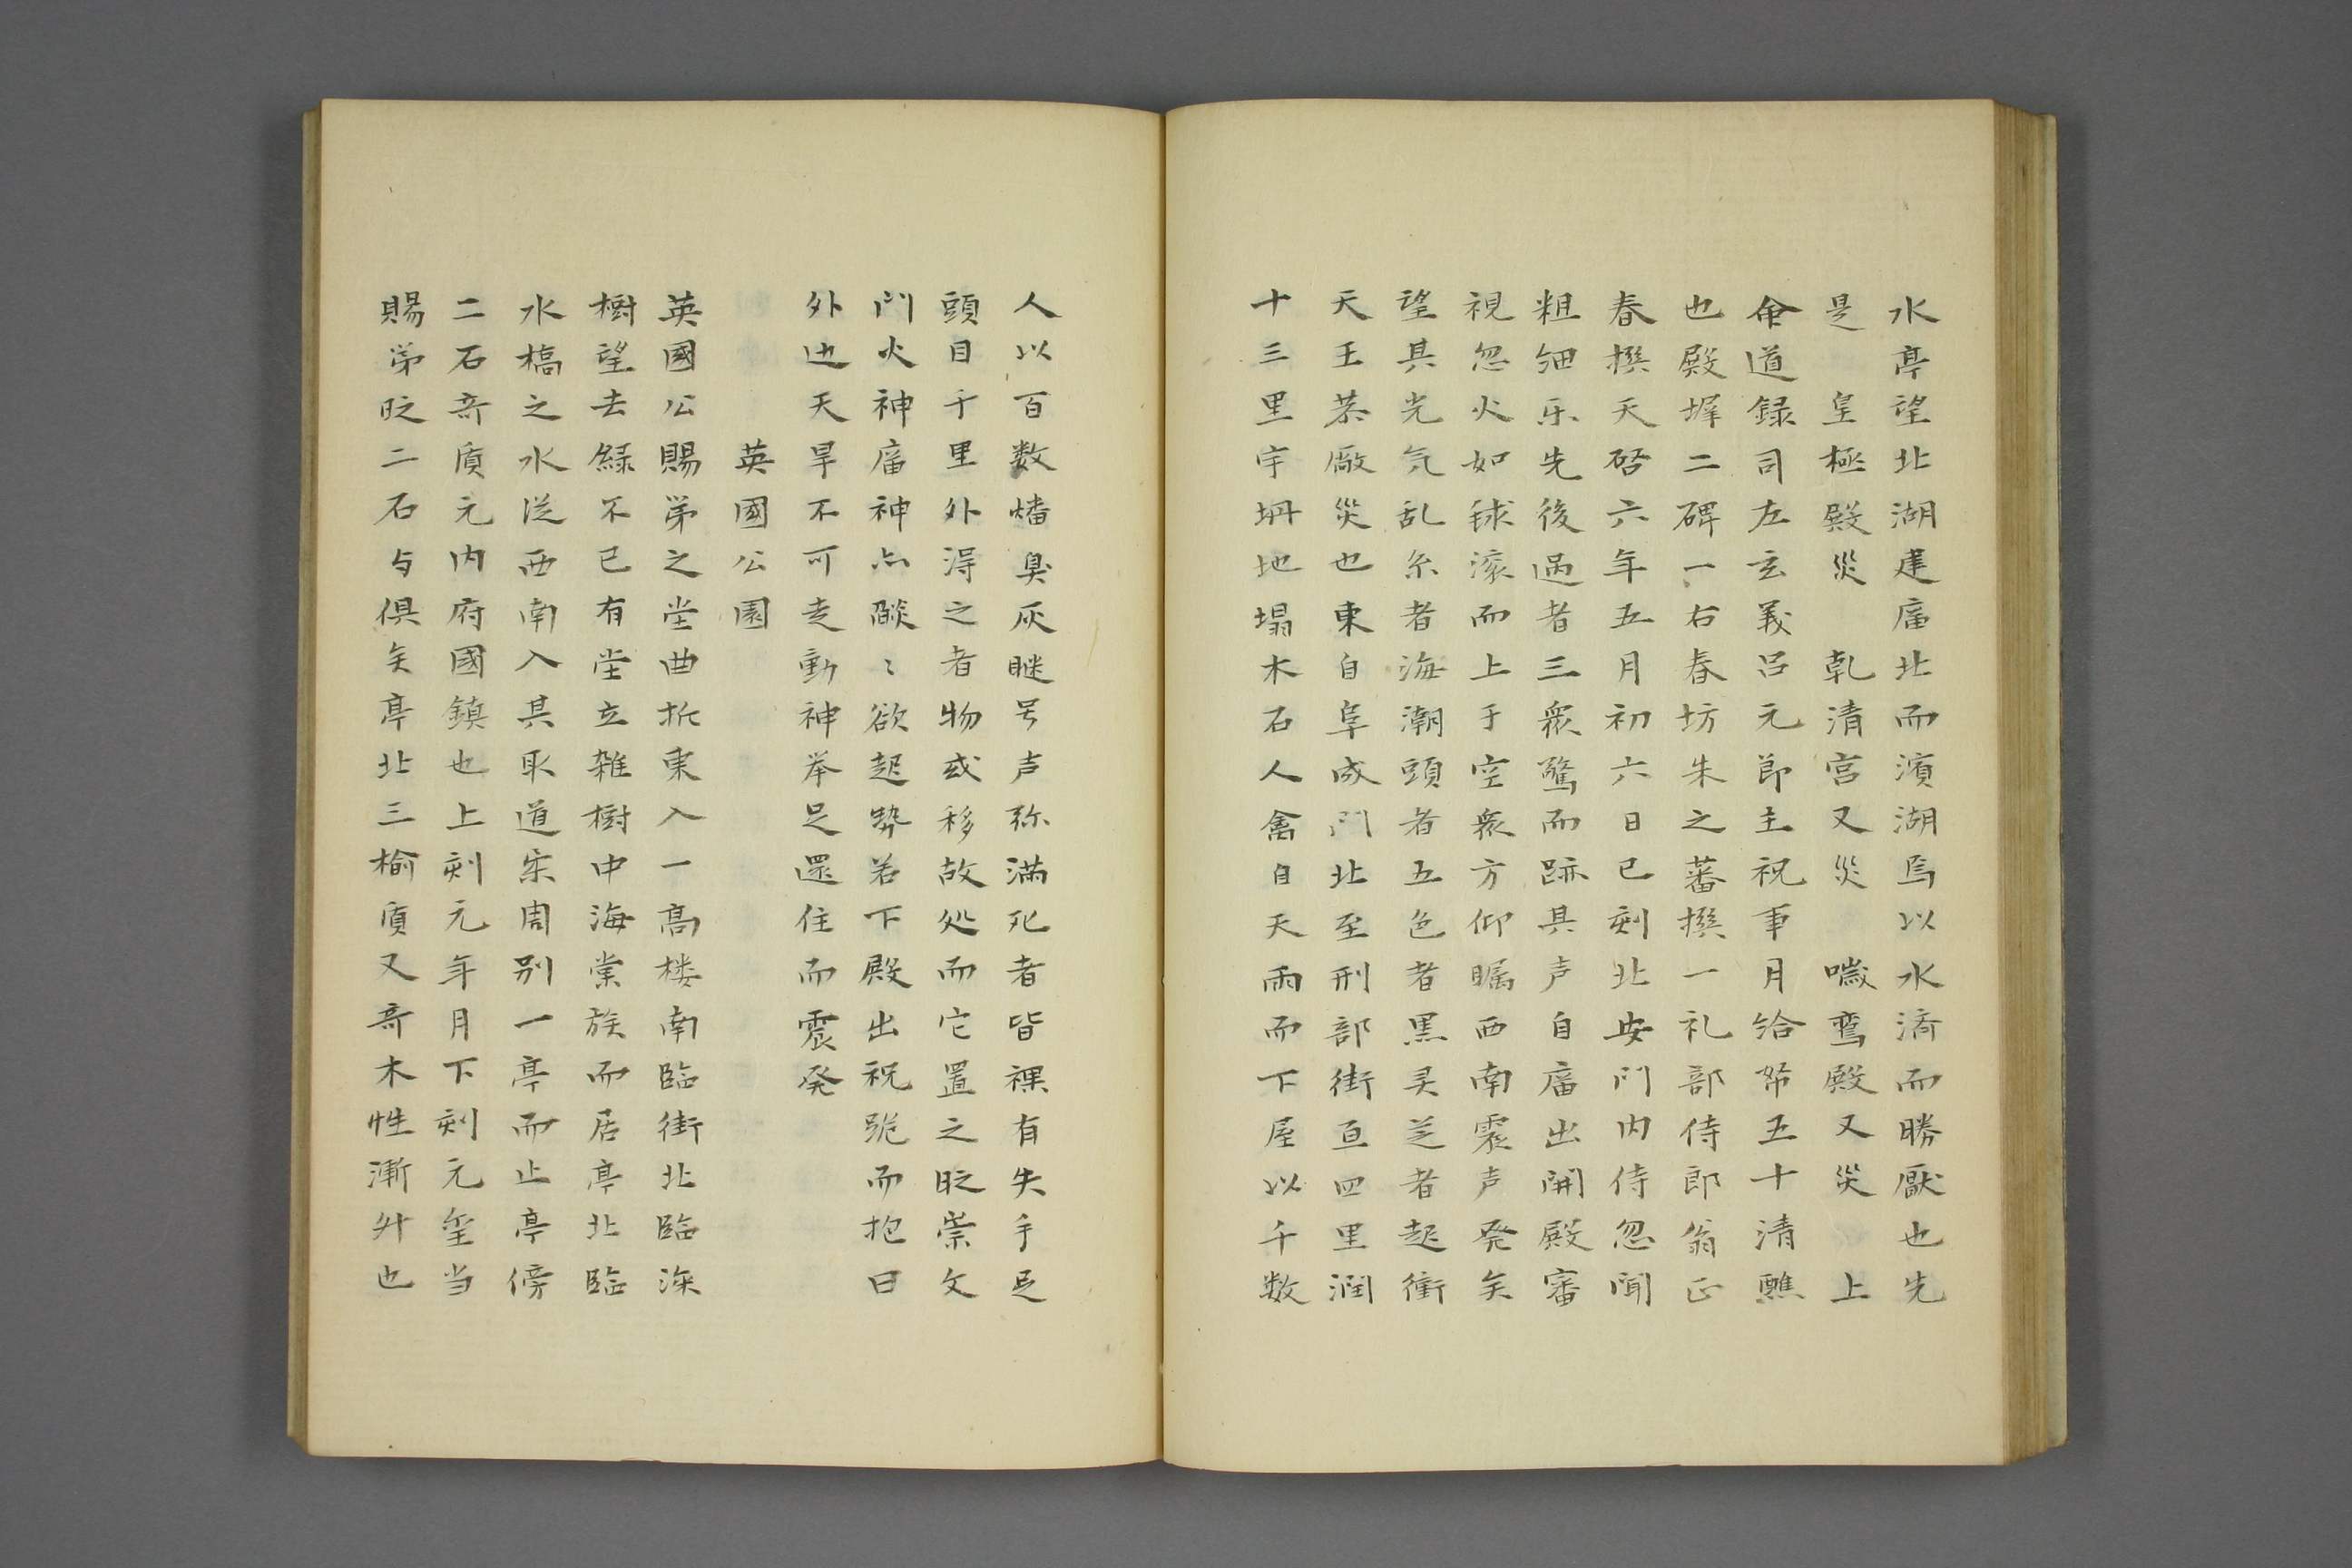 水亭望北湖建庿北而濱湖焉以水済而勝厭也先
是　皇極殿災　乾清宮又災　噦鸞殿又災　上
命道録司左玄義呂元節主祝事月給帑五十清醮
也殿墀二碑一右春坊朱之蕃撰一礼部侍郎翁正
春撰天啓六年五月初六日巳刻北安门内侍忽闻
粗細乐先後過者三衆驚而跡其声自庿出開殿審
視忽火如球滚而上于空衆方仰瞩西南震声発矣
望其光气乱糸者海潮頭者五色者黒灵芝者起衝
天王恭廠災也東自阜成门北至刑部街亘四里濶
十三里宇坍地塌木石人禽自天雨而下屋以千数
人以百数燔臭灰瞇号声弥満死者皆裸有失手足
頭目千里外淂之者物或移故処而它置之时崇文
门火神庿神亦燄〻欲起勢若下殿出祝跪而抱曰
外边天旱不可走動神举足還住而震発
英國公園
英國公賜第之堂曲折東入一高楼南臨街北臨深
樹望去緑不已有堂立雑樹中海棠族而居亭北臨
水橋之水従西南入其取道宋周别一亭而止亭傍
二石奇質元内府國鎮也上刻元年月下刻元璽当
賜第时二石与俱矣亭北三榆質又奇木性漸升也